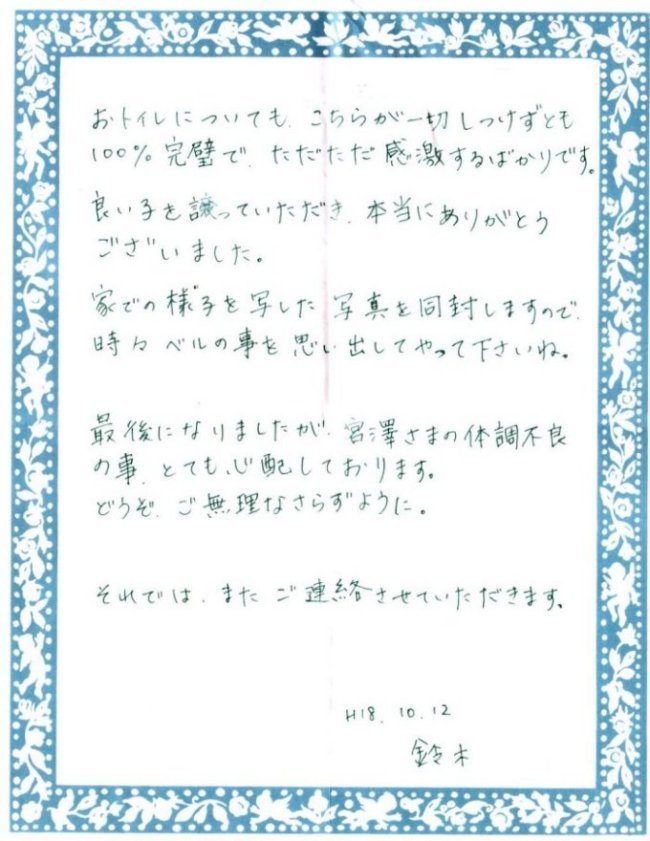 おトイレについても、こちらが一切しつけずとも
100% 完璧で、ただただ 感激するばかりです。
良い子を譲っていただき、本当にありがとう
ございました。
家での様子を写した 写真を同封しますので、
時々 ベルの事を思い出してやって下さいね。
最後になりましたが、宮澤さまの体調不良
の事、とても心配しております。
どうぞ、ご無理なさらずように。
それでは、また ご連絡させていただきます。
H18. 10. 12
鈴木